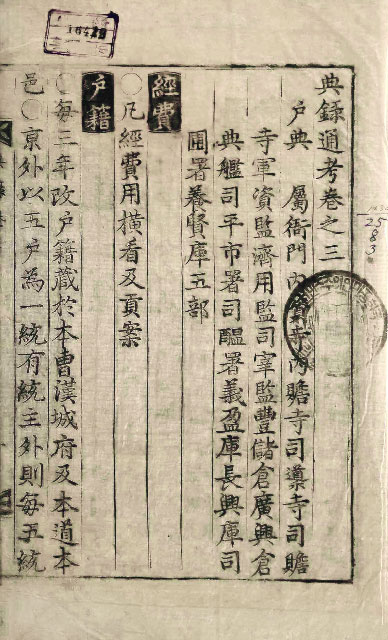 典錄通考卷之三
戶典 屬衙門內資寺內贍寺司䆃寺司贍
寺軍資監濟用監司宰監豐儲倉廣興倉
典艦司平市署司醞署義盈庫長興庫司
圃署養賢庫五部
經費
〇凡經費用橫看及貢案
戶籍
〇每三年改戶籍藏於本曹漢城府及本道本
邑〇京外以五戶為一統有統主外則每五統
2583